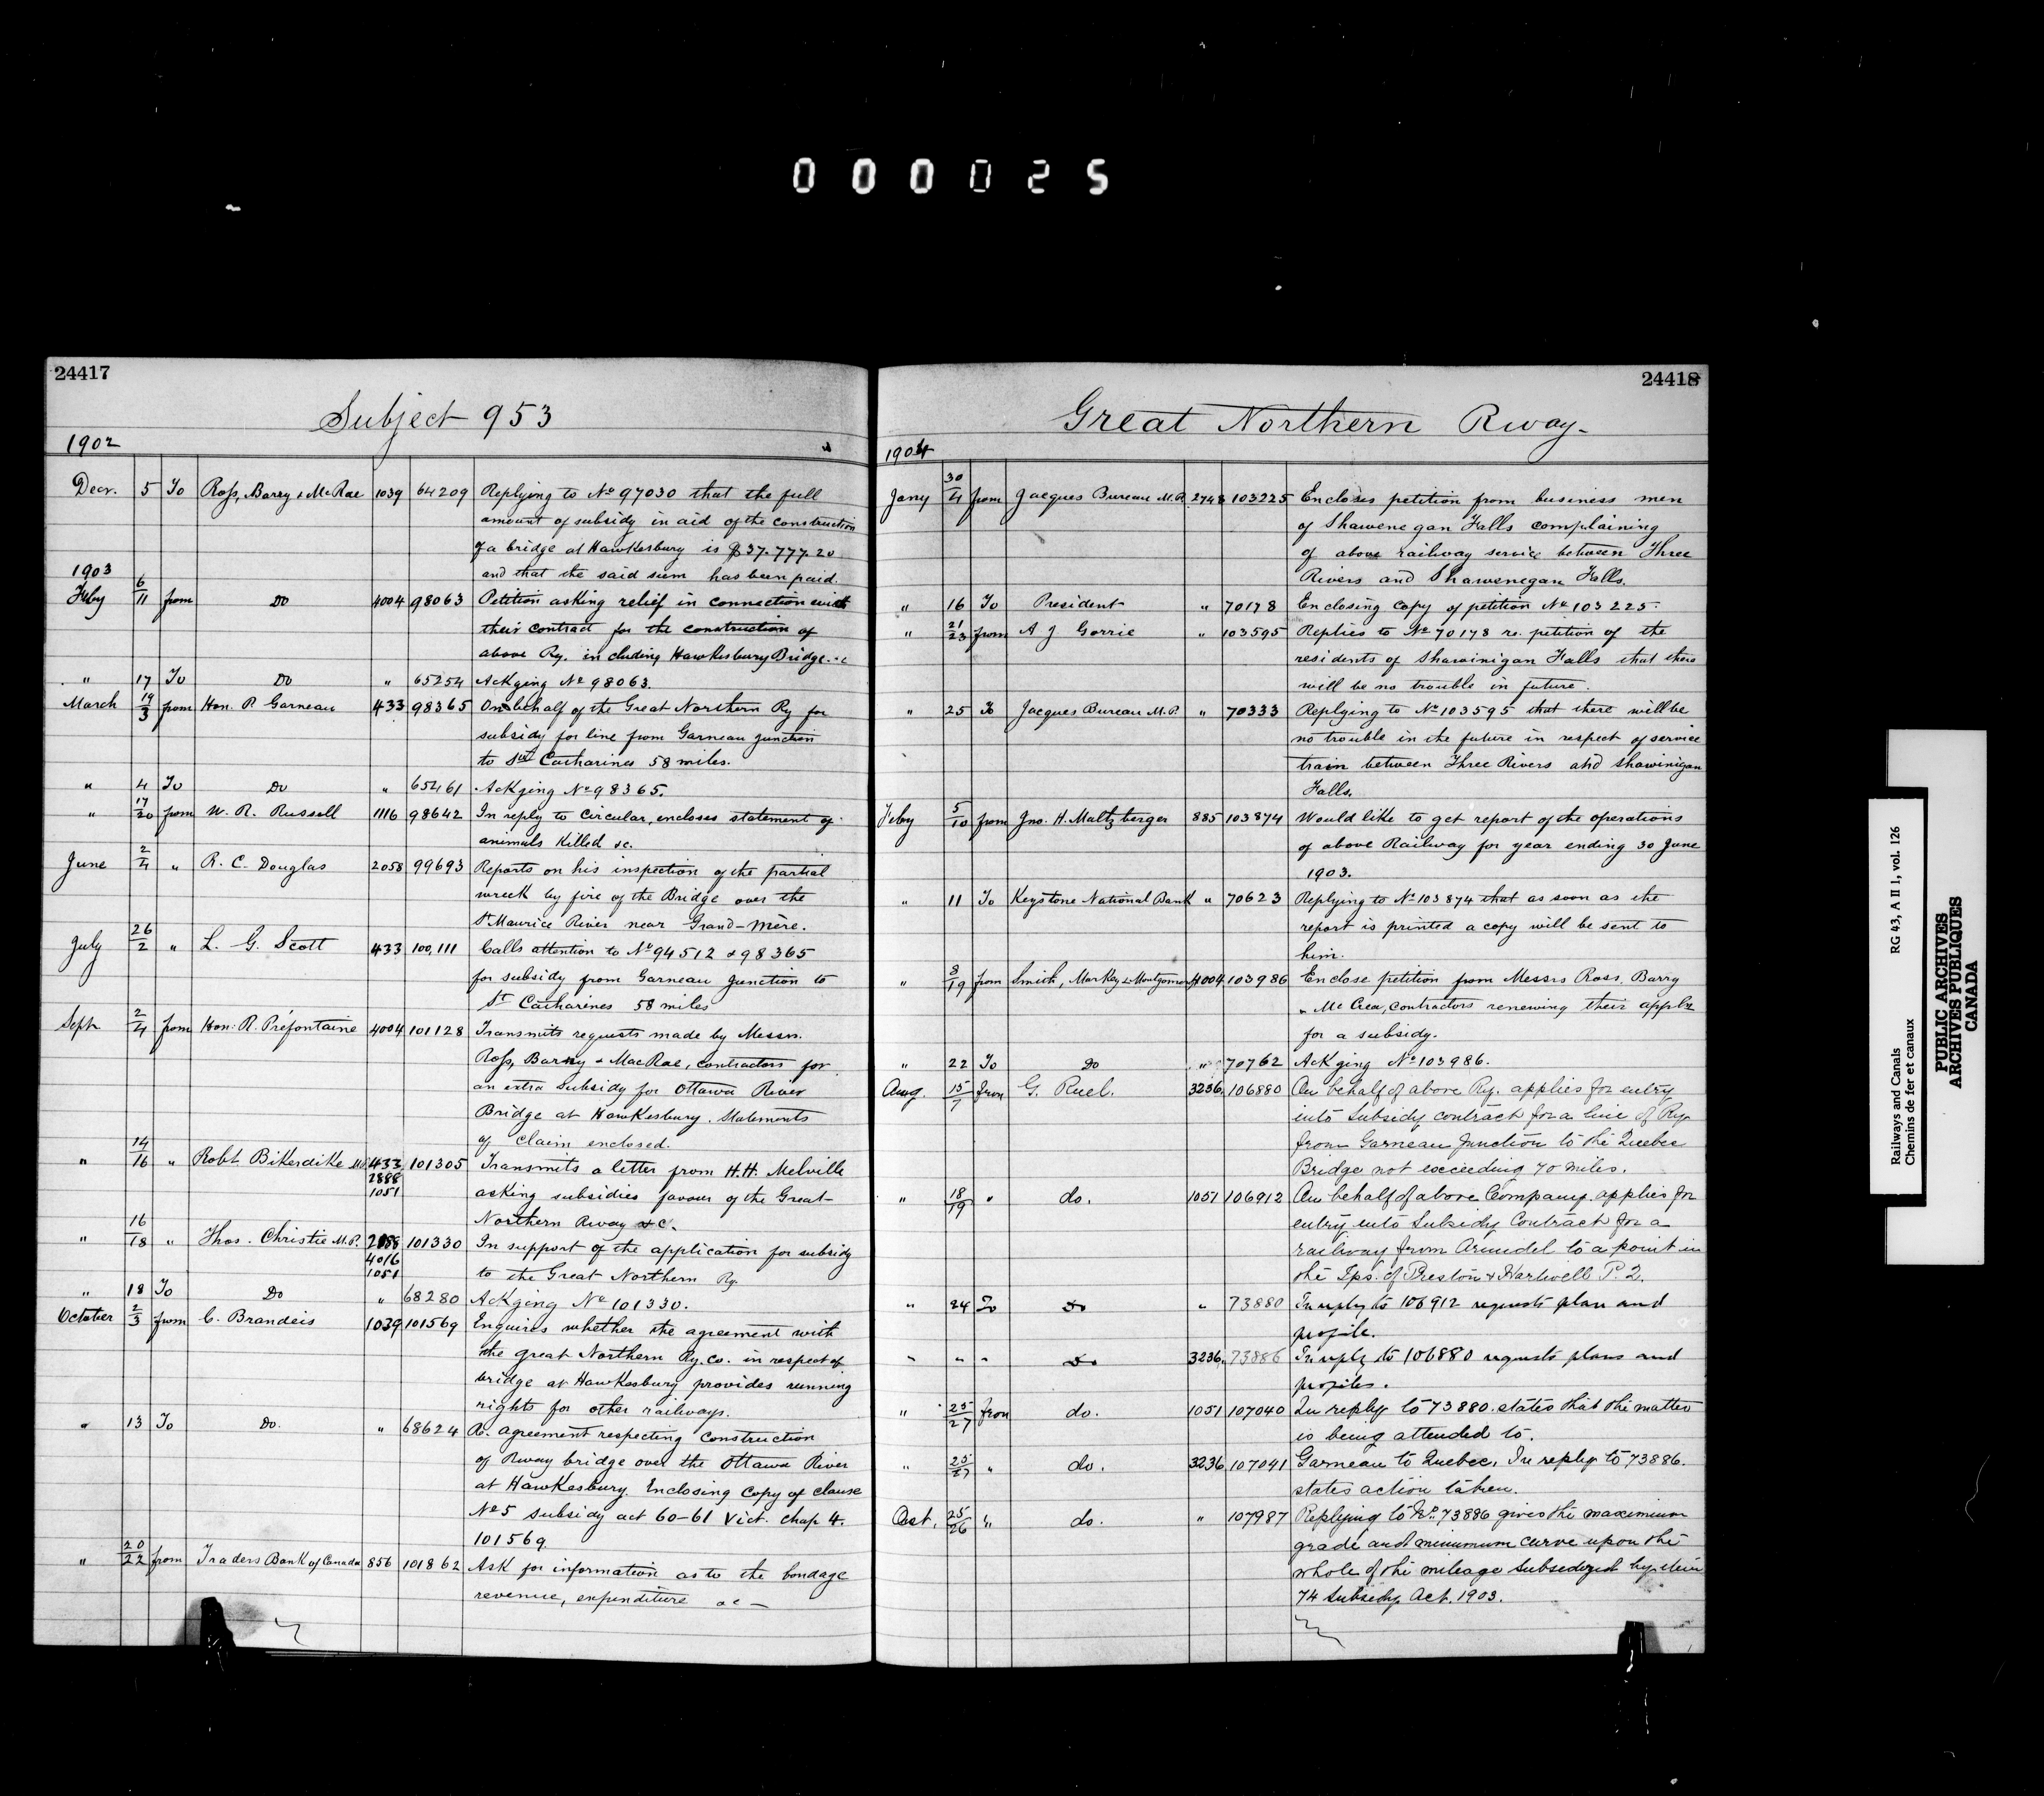 000025
24417
Subject 953
1902
Decr. 5 To Ross, Barry & McRae 1039 64209 Replying to No 97030 that the full
amount of subsidy in aid of the construction
of a bridge at Hawkesbury is $37.777.20
and that the said sum has been paid.
1903
Feby 6/11 from Do 4004 98063 Petition asking relief in connection with
their contract for the construction of
above Ry. including Hawkesbury Bridge
" 17 To Do " 65254 Ackging No 98063.
March 19/3 from Hon. P. Garneau 433 98365 On behalf of the Great Northern Ry for
subsidy for line from Garneau Junction
to St Catharines 58 miles.
" 4 To Do " 65461 Ackging No 98365.
" 17/20 from W. R. Russell 1116 98642 In reply to Circular, encloses statement of
animals Killed &c.
June 2/4 " R. C. Douglas 2058 99693 Reports on his inspection of the partial
wreck by fire of the Bridge over the
St Maurice River near Grand-Mère.
July 26/2 " L. G. Scott 433 100,111 Calls attention to No 94512 & 98365
for subsidy from Garneau Junction to
St Catharines 58 miles
Sept 2/4 from Hon. R. Préfontaine 4004 101128 Transmits requests made by Messrs.
Ross, Barry & MacRae, contractors for
an extra Subsidy for Ottawa River
Bridge at Hawkesbury. Statements
of claim enclosed.
" 14/16 " Robt Bikerdike M.P. 433 101305 Transmits a letter from H.H. Melville
2888
1051 asking subsidies favour of the Great
Northern Rway &c.
" 16/18 " Thos. Christie M.P. 2888 101330 In support of the application for subsidy
4016
1051 to the Great Northern Ry.
" 18 To Do " 68280 Ackging No 101330.
October 2/3 from C. Brandeis 1039 101569 Enquires whether the agreement with
the great Northern Ry. Co. in respect of
bridge at Hawkesbury provides running
rights for other railways.
" 13 To Do. " 68624 R. agreement respecting Construction
of Rway bridge over the Ottawa River
at Hawkesbury. Enclosing Copy of clause
No 5 subsidy act 60-61 Vict. Chap 4.
101569
" 20/22 from Traders Bank of Canada 856 101862 Ask for information as to the bondage
revenue, expenditure &c -
24418
Great Northern Rway-
1904
Jany 30/4 from Jacques Bureau M.P. 2748 103225 Encloses petition from business men
of Shawenegan Falls complaining
of above railway service between Three
Rivers and Shawenegan Falls.
" 16 To President " 70178 Enclosing copy of petition No 103225.
" 21/23 from A J Gorrie " 103595 Replies to No 70178 re. petition of the
residents of Shawinigan Falls that there
will be no trouble in future.
" 25 To Jacques Bureau M.P. " 70333 Replying to No 103595 that there will be
no trouble in the future in respect of service
train between Three Rivers and Shawinigan
Falls.
Feby 5/10 from Jno. H. Maltzberger 885 103874 Would like to get report of the operations
of above Railway for year ending 30 June
1903.
" 11 To Keystone National Bank " 70623 Replying to No 103874 that as soon as the
report is printed a copy will be sent to
him.
" 8/19 from Smith, Markey & Montgomery 4004 103986 Enclose petition from Messrs Ross, Barry
& McCrea, contractors renewing their appln
for a subsidy.
" 22 To Do " 70762 Ackging No 103986.
Aug. 15/7 from G. Ruel. 3236 106880 On behalf of above Ry. applies for entry
into Subsidy contract for a line of Ry.
from Garneau Junction to the Quebec
Bridge not exceeding 70 miles.
" 18/19 " do. 1051 106912 On behalf of above Company applies for
entry into Subsidy Contract for a
railway from Arundel to a point in
the Tps. of Preston & Hartwell P.Q.
" 24 To Do " 73880 In reply to 106912 requests plan and
profile.
" " " Do 3236 73886 In reply to 106880 requests plans and
profiles.
" 25/27 from do. 1051 107040 In reply to 73880 states that the matter
is being attended to.
" 25/27 " do. 3236 107041 Garneau to Quebec, In reply to 73886.
states action taken.
Oct. 25/26 " do. " 107987 Replying to No. 73886 gives the maximum
grade and minimum curve upon the
whole of the mileage subsidized by item
74 Subsidy Act. 1903.
Railways and Canals RG 43, A II 1, vol. 126
Chemins de fer et canaux
PUBLIC ARCHIVES
ARCHIVES PUBLIQUES
CANADA